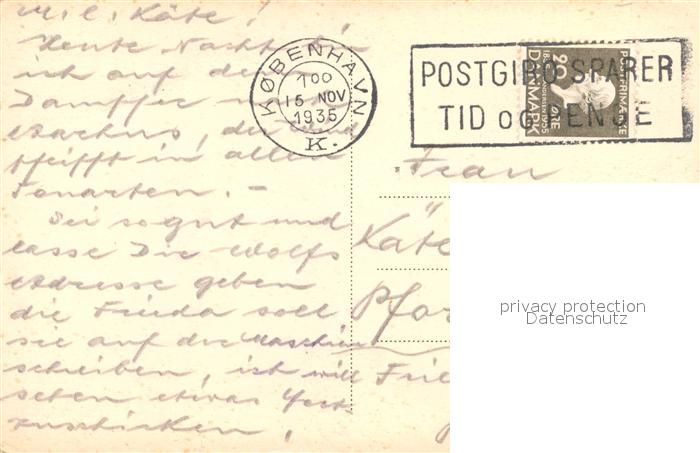 M. l. Käte!
Heute Nacht bin
ich auf dem
Dampfer
der
pfeifft in allen
Tonarten. –
Sei so gut und
lasse Dir Wolfs
Adresse geben
die Frieda soll
sie auf der Maschine
schreiben, ich will
etwas
zuschicken,
KØBENHAVN
100
15 NOV
1935
K.
POSTGIRO SPARER
TID OG PENGE
POSTFRIMÆRKE
20 ØRE
DANMARK
Frau
Käte
Pfar
privacy protection
Datenschutz